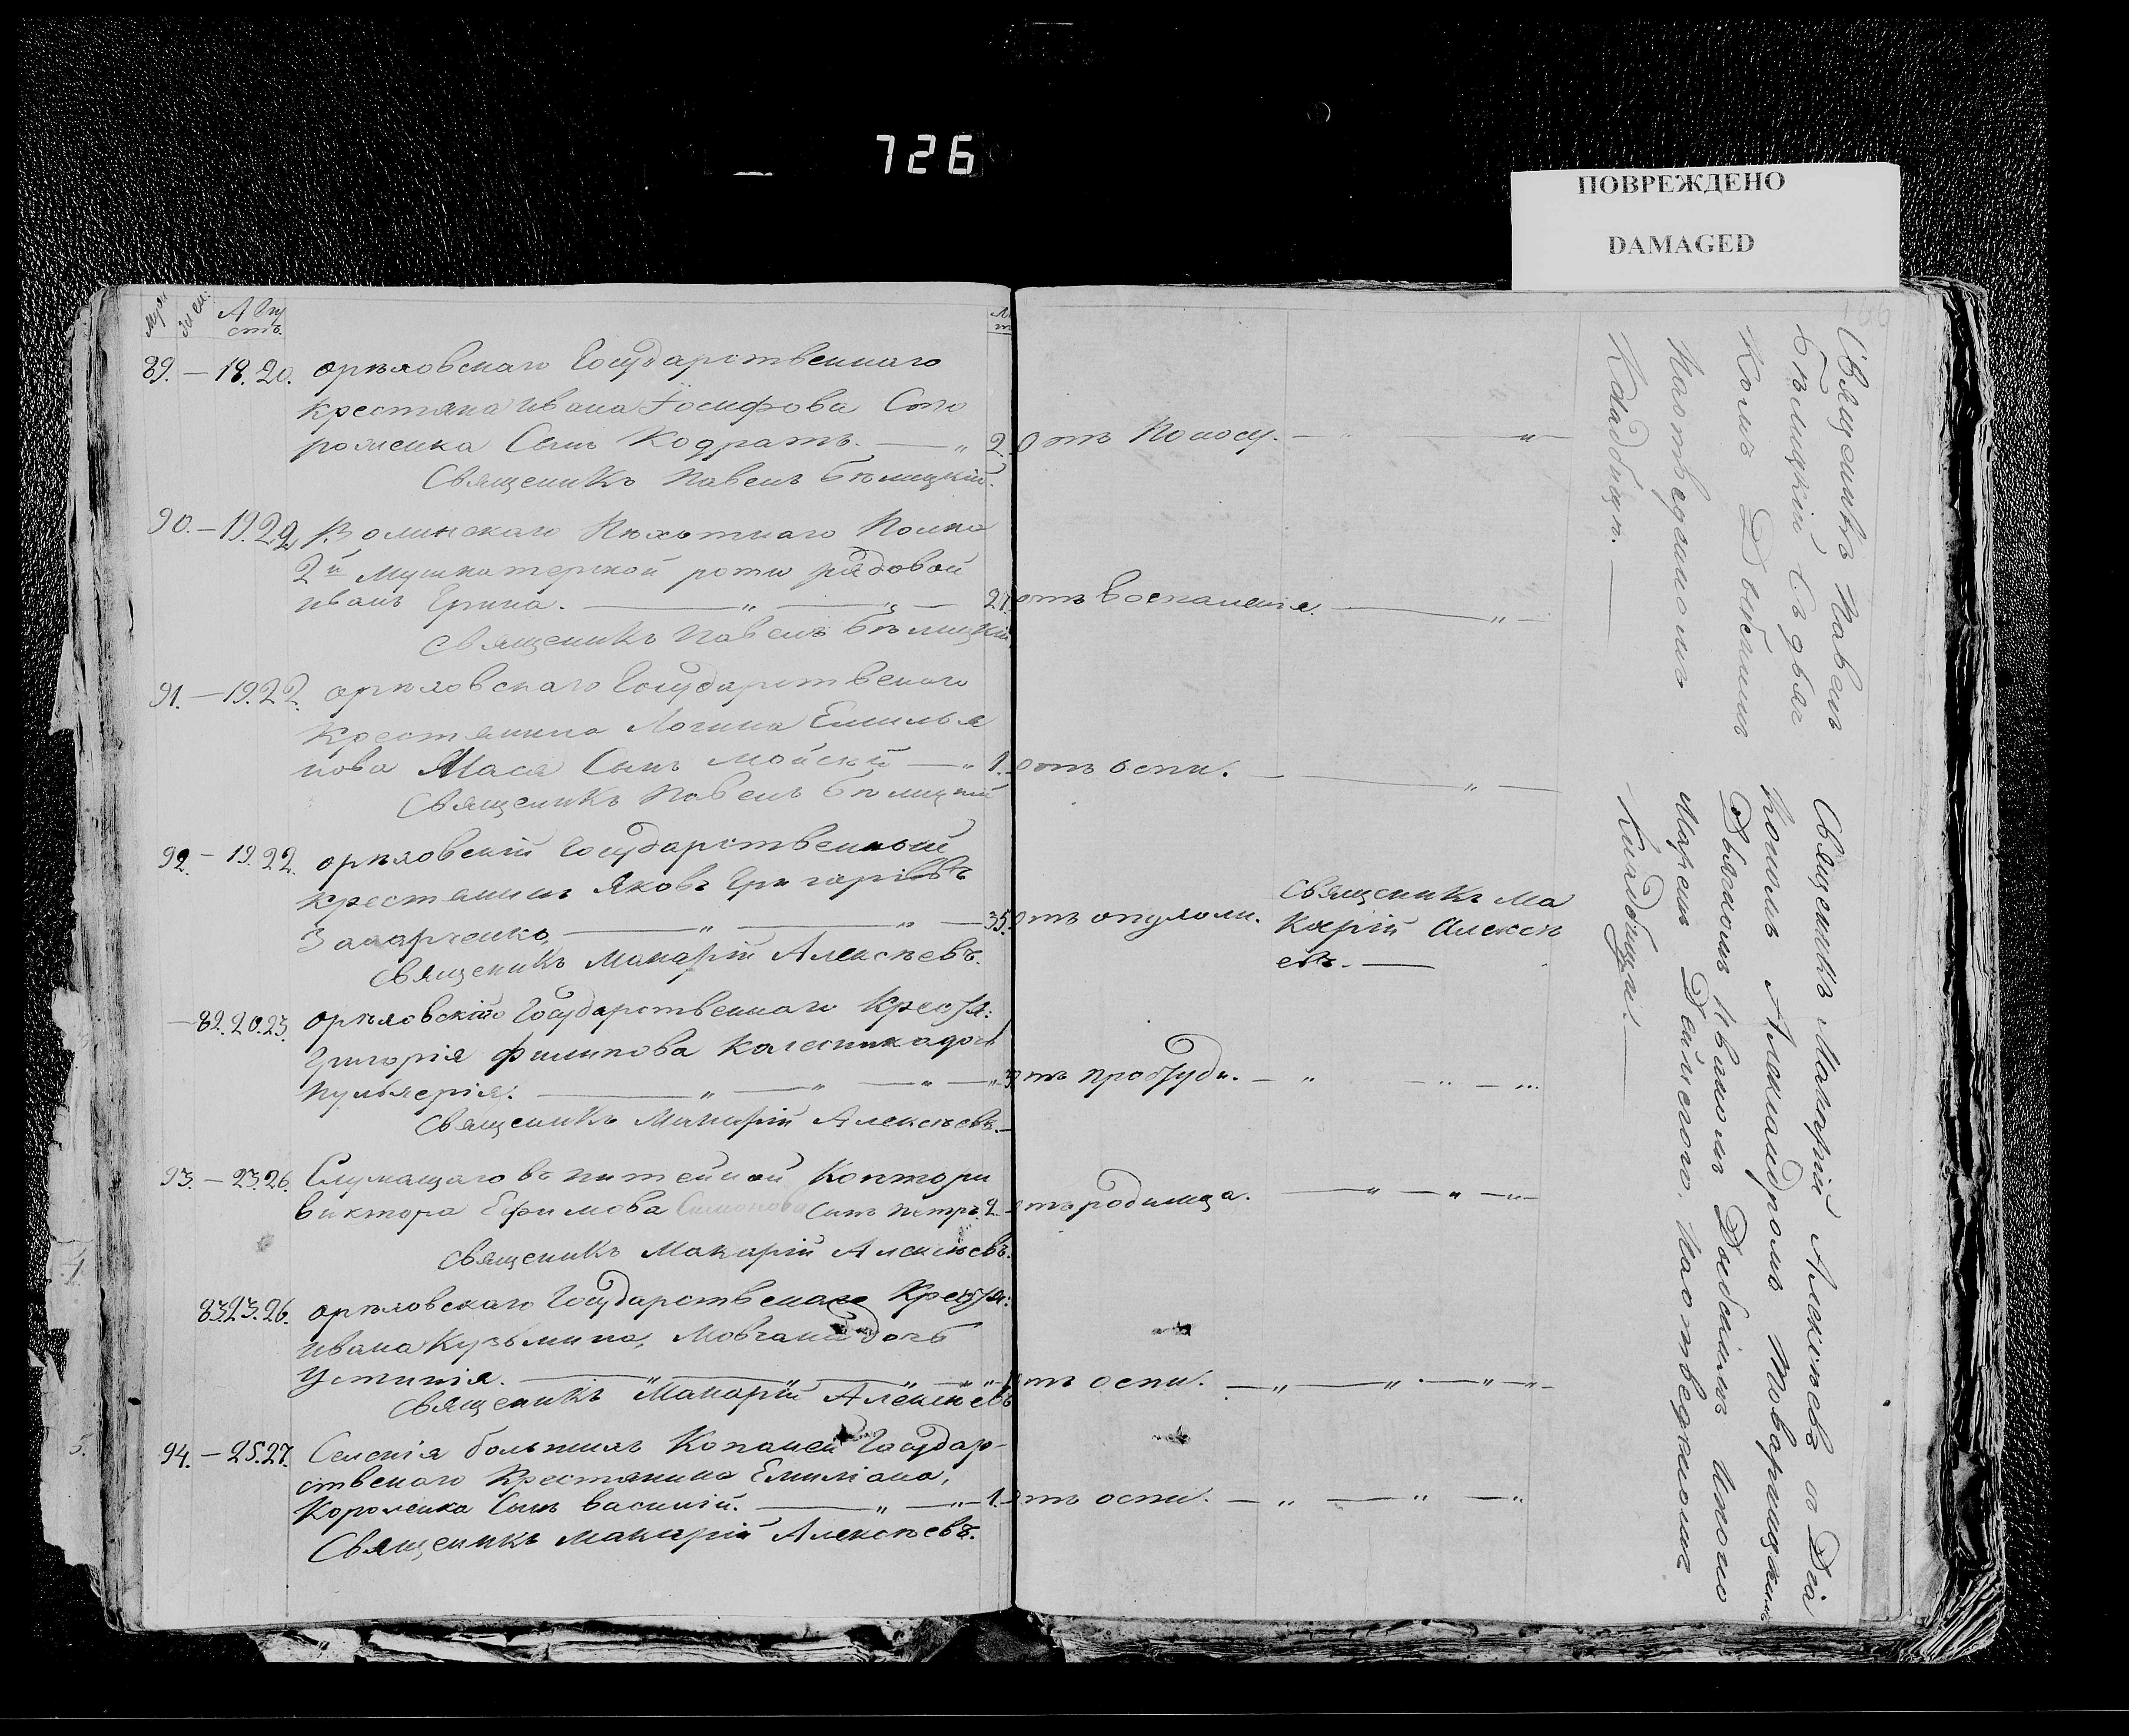 726
ПОВРЕЖДЕНО
DAMAGED
Муж
Жен.
Авгу
стъ.
89. — 18. 20. орѣловскаго Государственнаго
крестяна Ивана Іосифова Сто
роженка Сынъ Кодратъ. — „ 2. Отъ Поносу. — „ —
Священикъ Павелъ Бѣлицкій.
90. — 19. 22. Волинскаго Пѣхотнаго Полка
2й Мушкатерской роти рядовой
Иванъ Ерина. — „ — „ — 27. отъ Воспаленія. — „ —
Священикъ Павелъ Бѣлицкій
91. — 19. 22. орѣловскаго Государственаго
Крестянина Логина Емилья
нова Маса Сынъ Мойсей — „ 1. отъ оспи. — „ —
Священикъ Павелъ Бѣлицкій
92. — 19. 22. орѣловскій Государственной
крестянинъ Яковъ Григоріевъ
Захарченко, — „ — „ — 35. отъ опухоли. Священикъ Ма
карій Алексѣ
евъ. —
Священикъ Макарій Алексѣевъ.
— 82. 20. 23. орѣловскаго Государственнаго Крест:
Григорія Филипова Колесника дочь
Пульхерія: — „ — „ — „ — „ 3 отъ простуди. — „ — „ — „
Священикъ Макарій Алексѣевъ. —
93. — 23. 26. Служащаго въ питейной Конторы
Виктора Ефимова Симонова Сынъ Петръ. 2. отъ родимца. — „ — „ — „
Священикъ Макарій Алексѣевъ.
83. 23. 26. орѣловскаго Государственаго Крестя:
Ивана Кузьмина, Мовчана дочь
Устинія. — „ — „ — „ — „ отъ оспи. — „ — „ — „ — „ —
Священикъ Макарій Алексѣевъ
94. — 25. 27. Селенія большихъ Копаней Государ-
ственаго Крестянина Емиліана,
Короленка Сынъ Василій. — „ — „ — 1. отъ оспи. — „ — „ — „
Священикъ Макарій Алексѣевъ.
Священикъ Павелъ
Бѣлицкій Съ дьяч
комъ
На отведеномъ
Кладбищѣ. —
Священикъ Макарій Алексѣевъ съ Діа
кономъ Александромъ Товарницкимъ
Дьячкомъ Иваномъ
На отведеномъ
Кладбищѣ. —